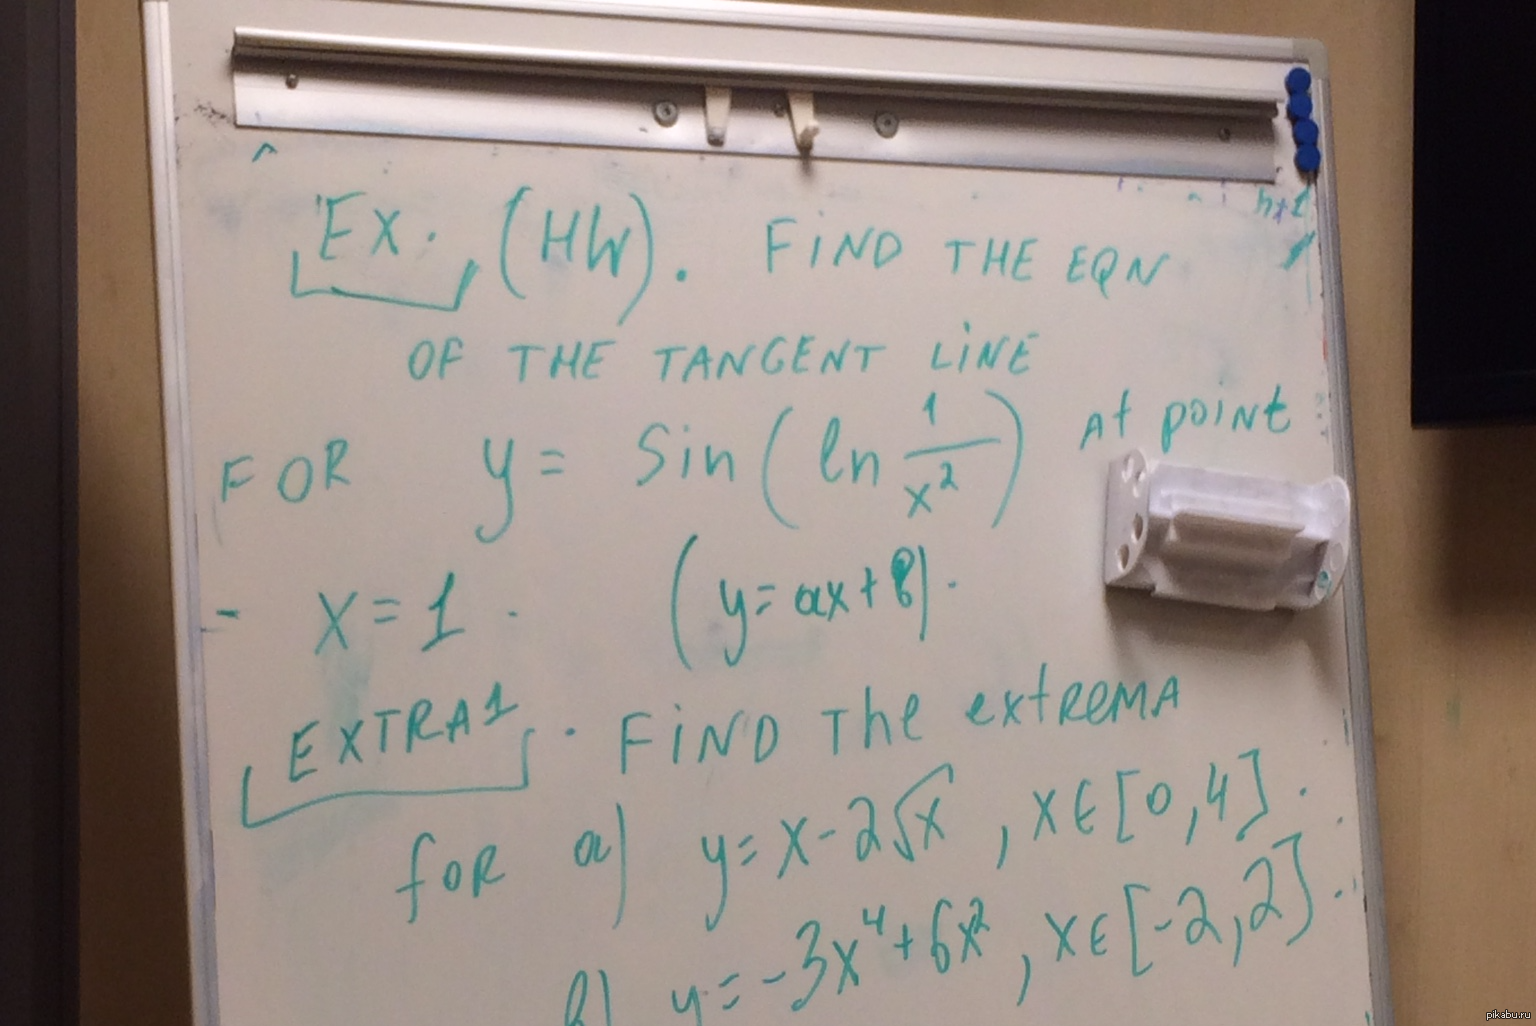 Ex. (HW). FIND THE EQN
OF THE TANGENT LINE
FOR y = Sin(ln 1/x²) At point
- x = 1. (y = ax + b).
EXTRA 1. FIND The extREMA
for a) y = x - 2√x, x∈[0,4].
b) y = -3x⁴ + 6x², x∈[-2,2].
n+1
pikabu.ru